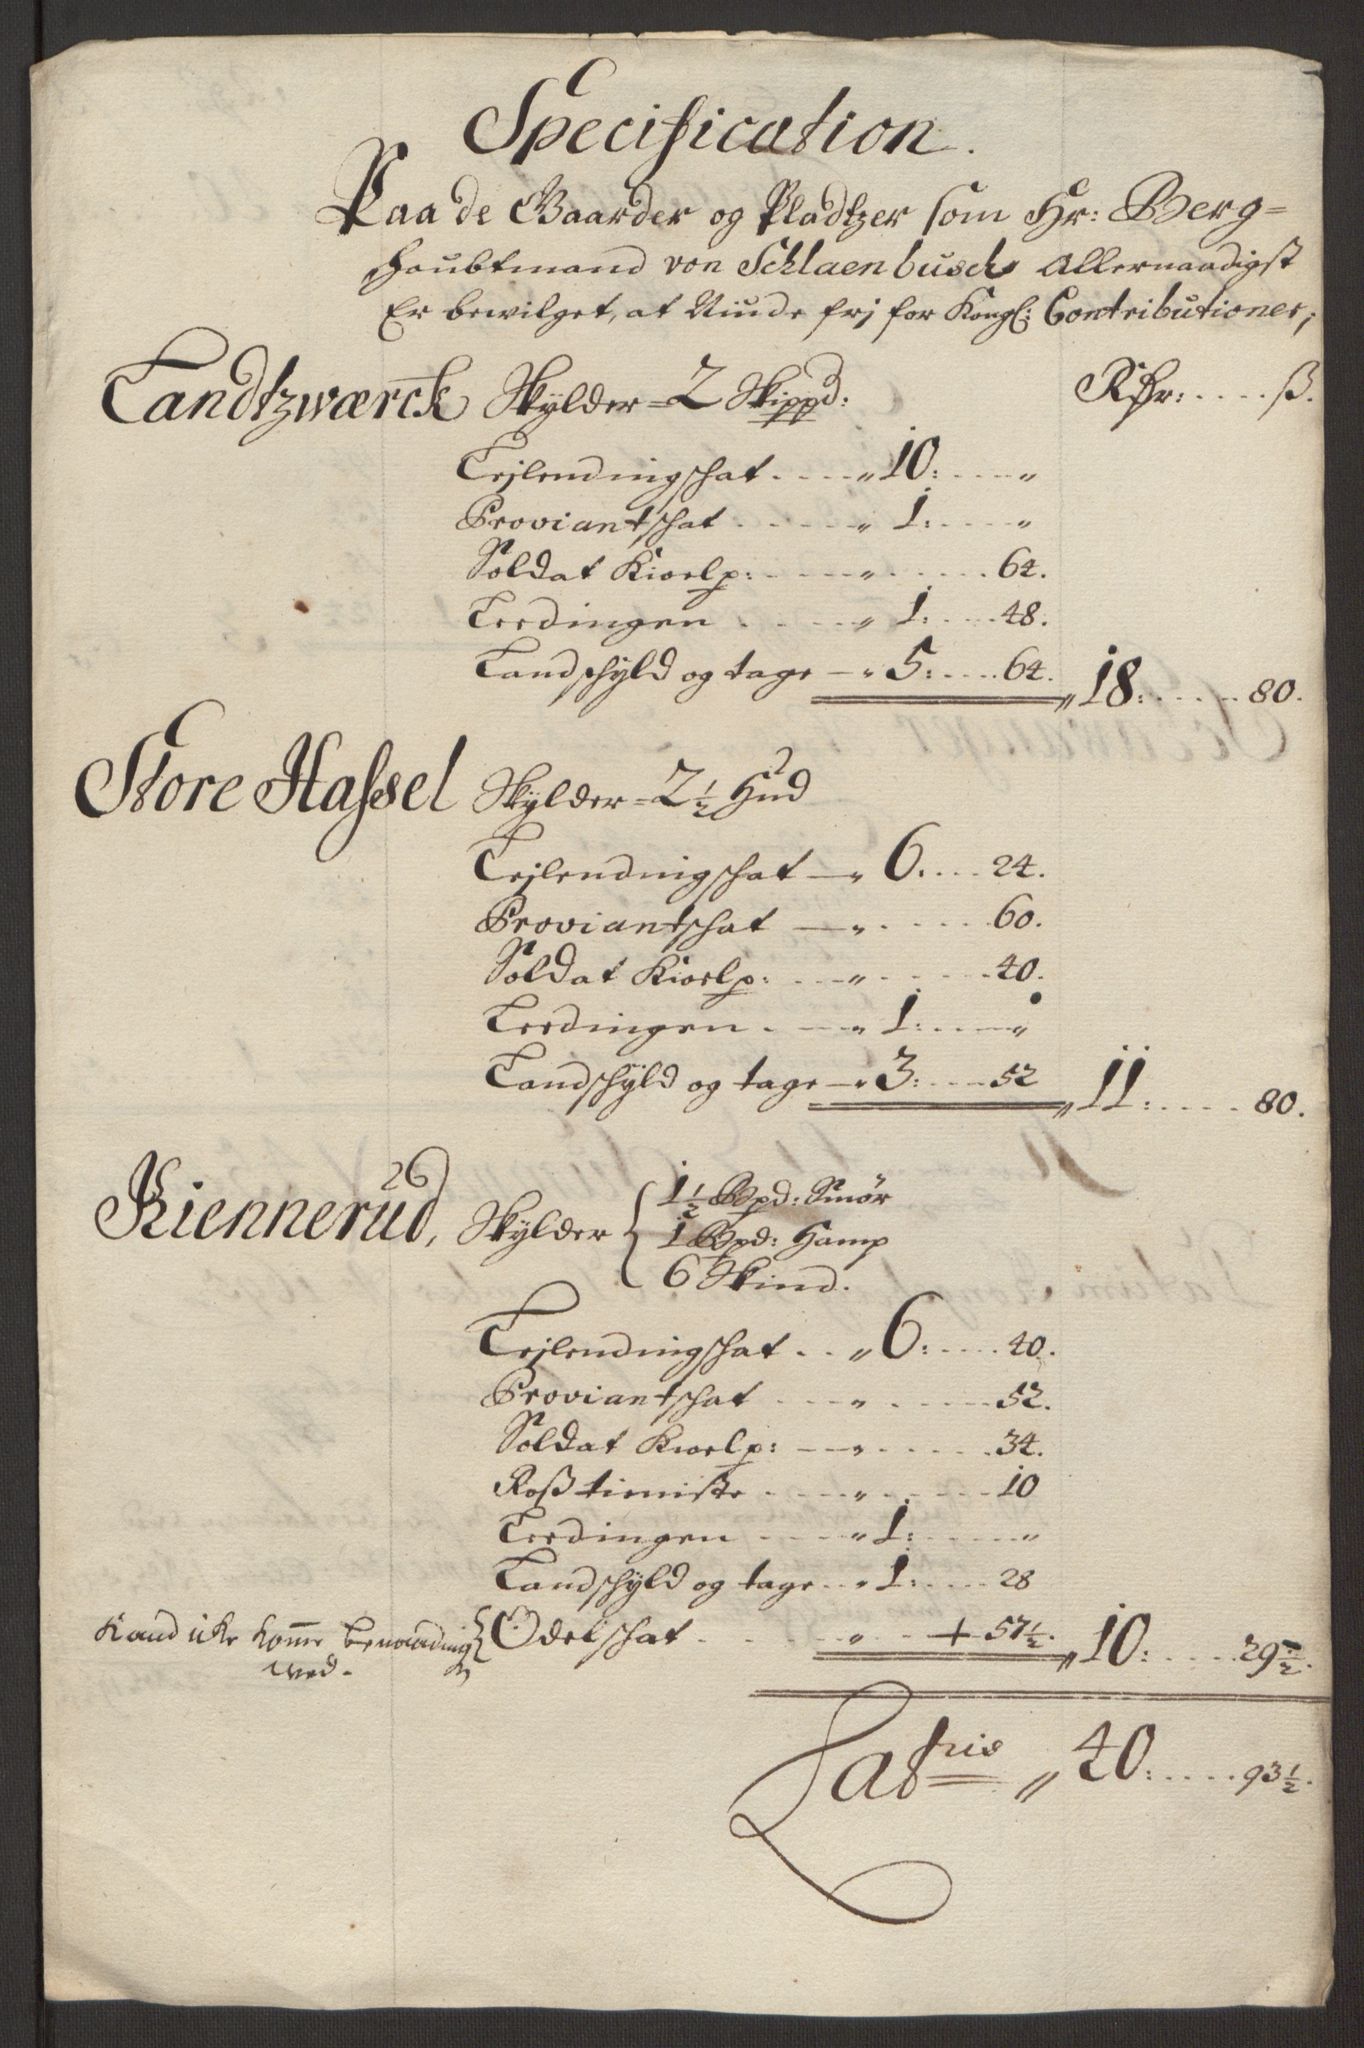 Specification.
Paa de Gaarder og Pladtzer som Hr: Berg=
haubtmand von Schlaenbusch Allernaadigst
Er bewilget, at Niude frj for Kongl: Contributioner,
Landtzwærck Skylder = 2 Skippd: Rdr: .... ß.
Lejlendingschat .... „ 10: .... „
Proviantschat .... „ 1: .... „
Soldat Kioelp: .... „ .... 64.
Leedingen .... „ 1: .... 48.
Landschyld og tage — „ 5: .... 64. „ 18: .... 80.
Store Hassel Skylder = 2 1/2 Hud
Lejlendingschat — „ 6: .... 24.
Proviantschat — „ .... 60.
Soldat Kioelp: .... „ .... 40.
Leedingen .... „ 1: .... „
Landschyld og tage — „ 3: .... 52 „ 11: .... 80.
Kiennerud, Skylder { 1 1/2 Bpd: Smør
1 Bpd: Hamp
6 Skind.
Lejlendingschat .. „ 6: .... 40.
Proviantschat .... „ .... 52.
Soldat Kioelp: — „ .... 34.
Roßtieniste .... „ .... 10
Leedingen .... „ 1: .... „
Landschyld og tage .. „ 1: .... 28
Kand icke komme benaading { Odelschat .... „ .. + 57 1/2. „ 10: .... 29 1/2.
wed.
Latris „ 40: .... 93 1/2.